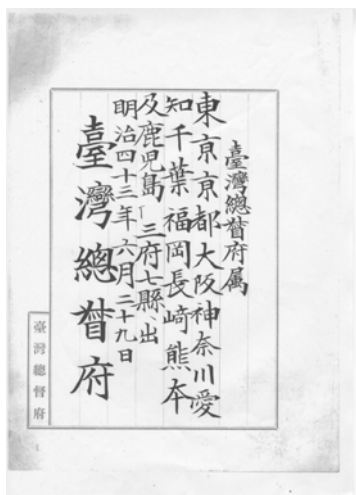 臺灣總督府属
東京京都大阪神奈川愛
知千葉福岡長崎熊本
及鹿児島ノ三府七縣ヘ出
明治四十三年六月二十九日
臺灣總督府
臺灣總督府